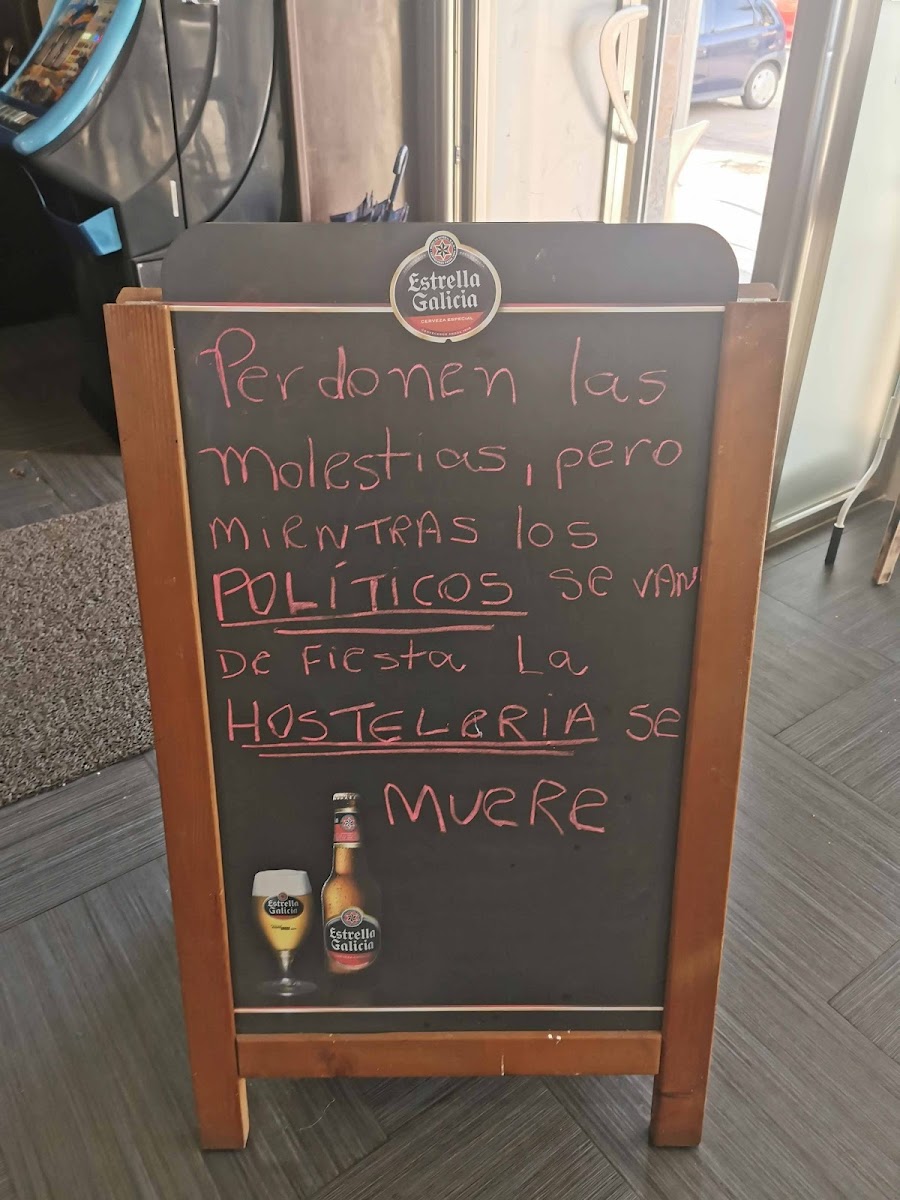 Estrella
Galicia
CERVEZA ESPECIAL
Perdonen las
molestias, pero
mientras los
POLÍTICOS se van
de fiesta la
HOSTELERIA se
muere
Estrella
Galicia
Estrella
Galicia